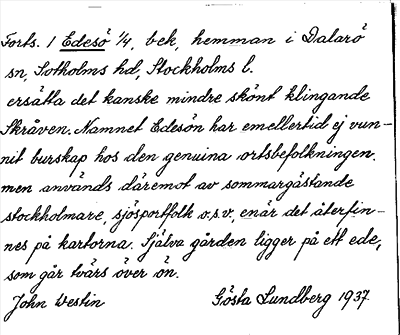 Forts. / Edesö 1/4, bek, hemman i Dalarö
sn, Sotholms hd, Stockholms l.
ersätta det kanske mindre skönt klingande
Skråven. Namnet Edesön har emellertid ej vun-
nit burskap hos den genuina ortsbefolkningen.
men används däremot av sommargästande
stockholmare, sjösportfolk o.s.v, enär det återfin-
nes på kartorna. Själva gården ligger på ett ede,
som går tvärs över ön.
John Westin Gösta Lundberg 1937